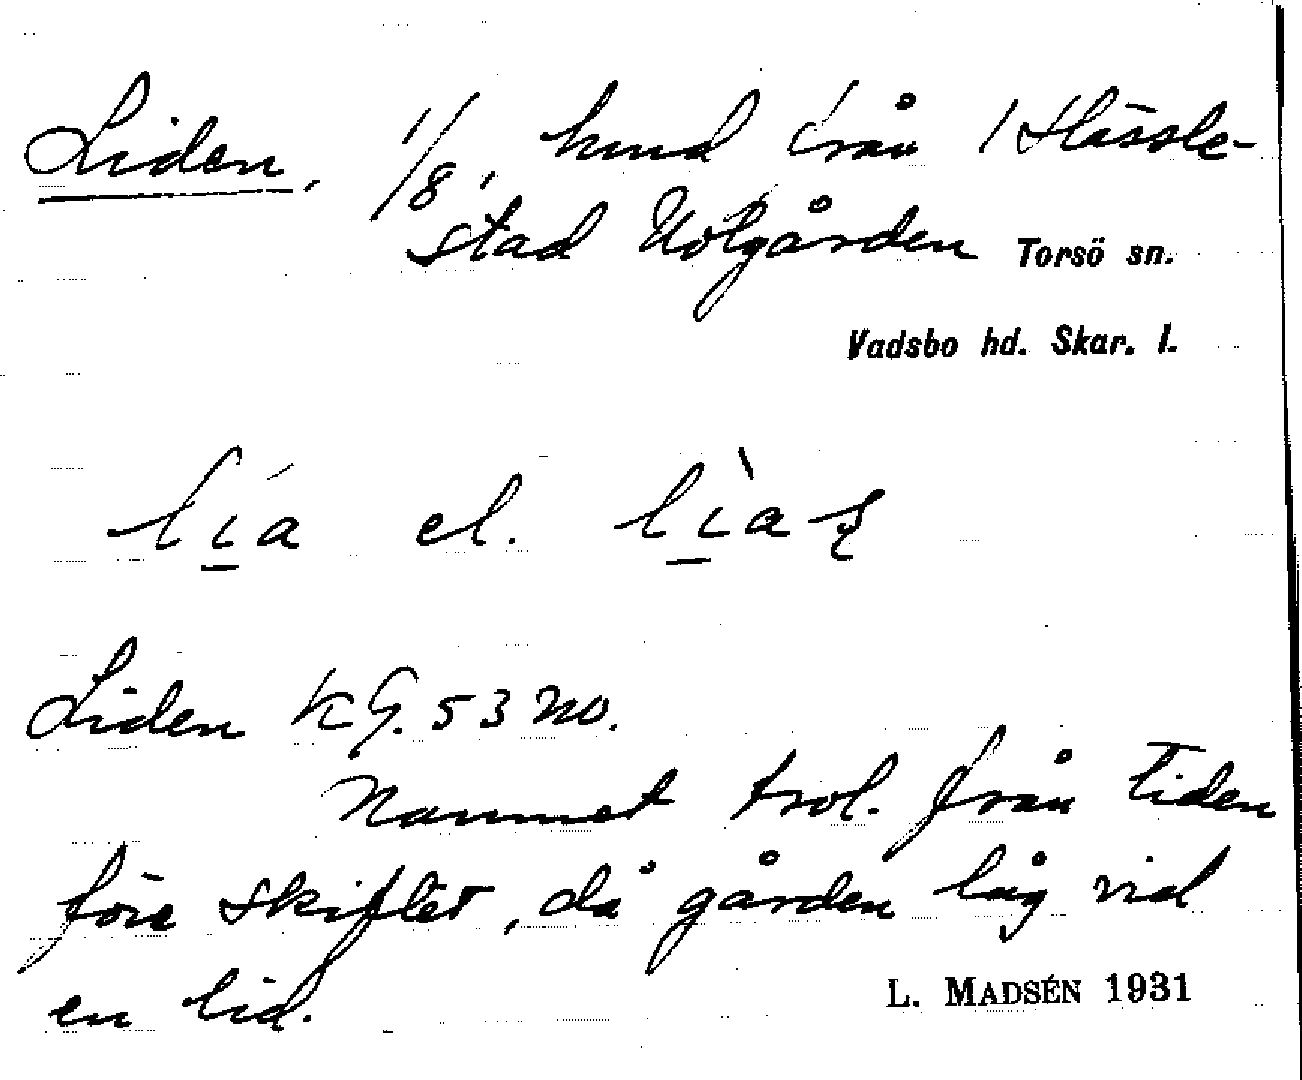 Liden, 1/8, hmd från 1 Hassle-
stad Holgården Torsö sn.
Vadsbo hd. Skar. l.
lía el. lìa
Liden KG. 53 no.
Namnet trol. från tiden
före skiftet, då gården låg vid
en lid.
L. MADSÉN 1931